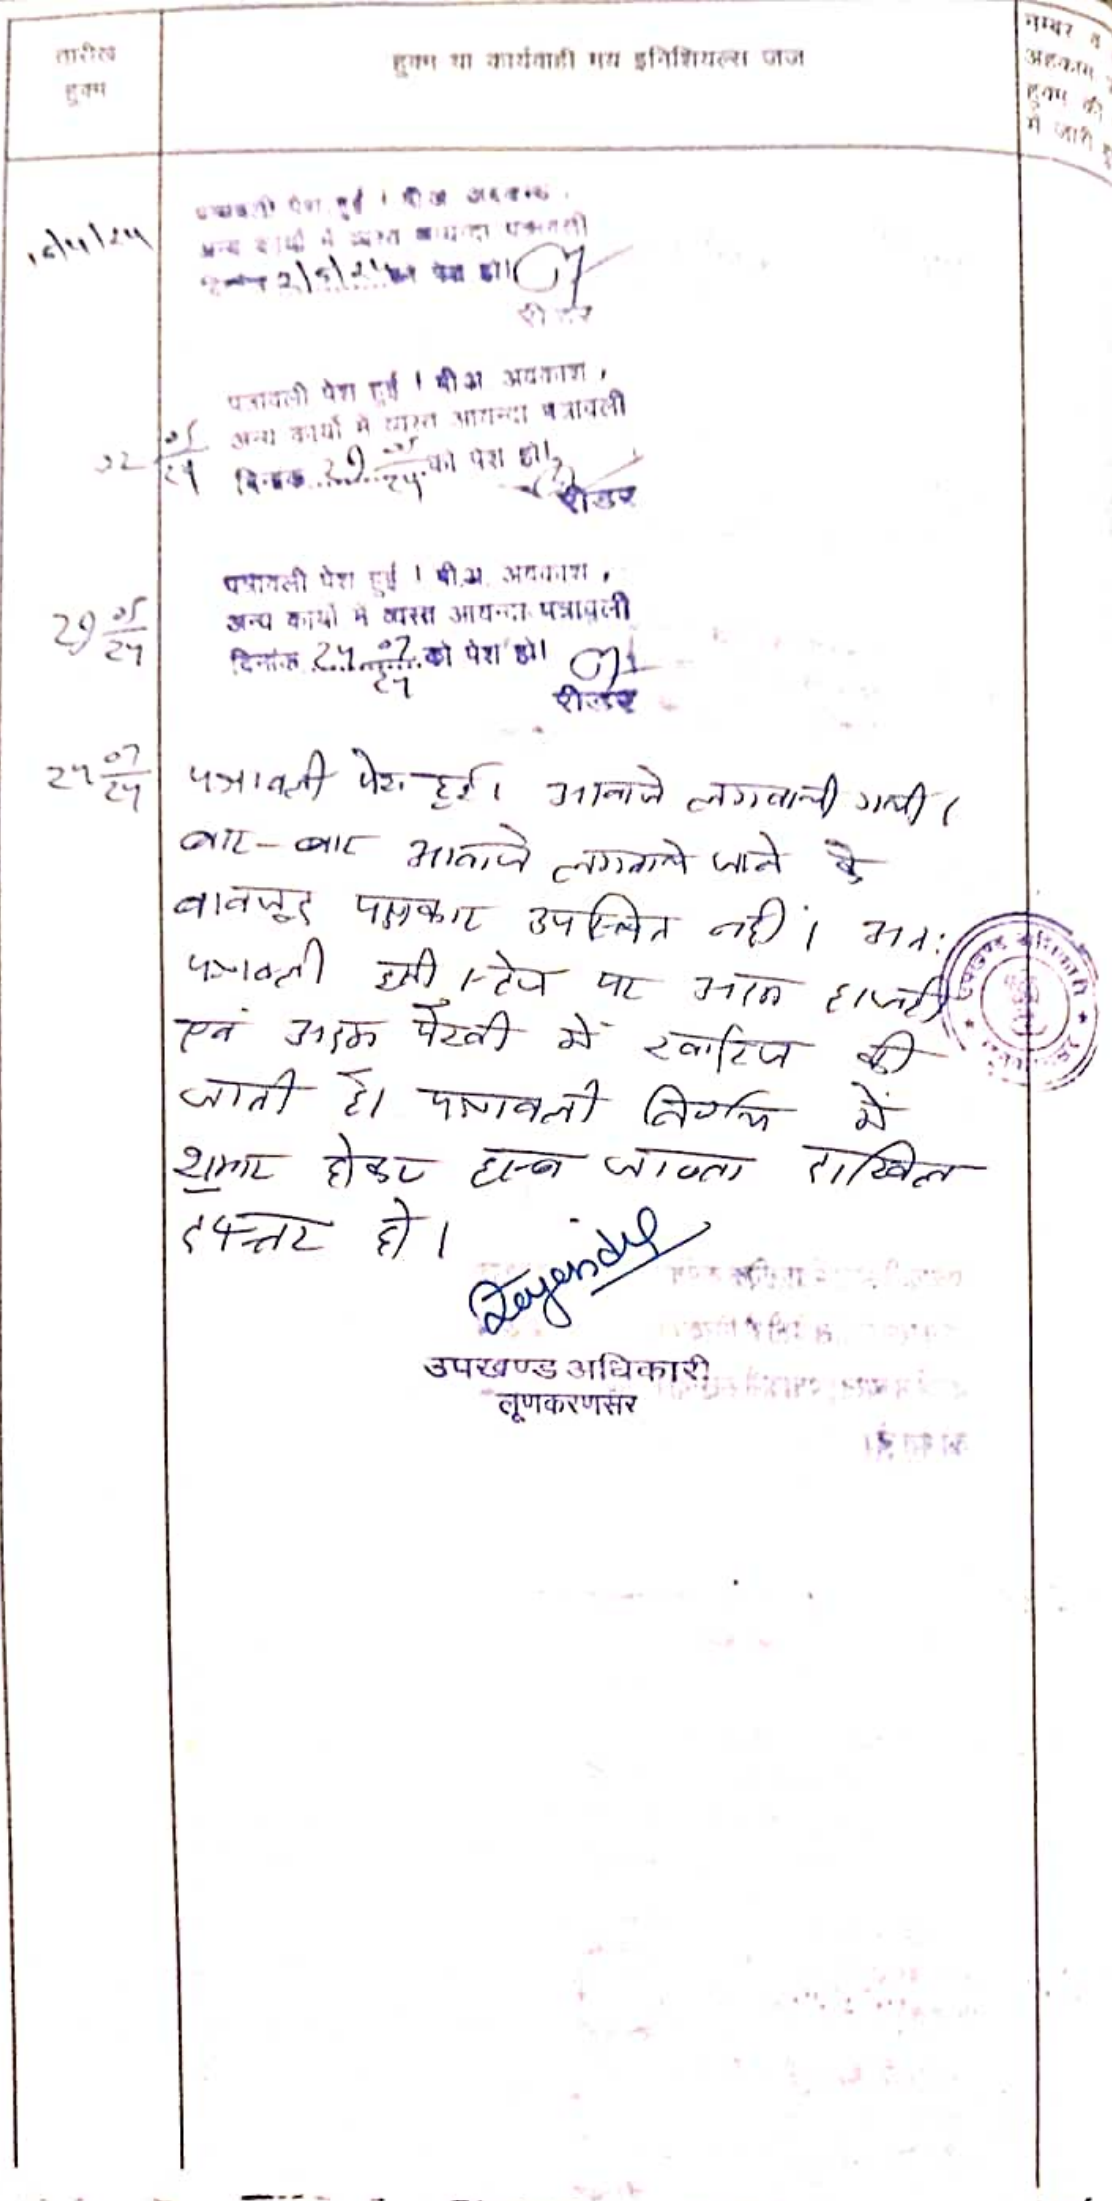 तारीख
हुक्म
हुक्म या कार्यवाही मय इनिशियल्स जज
नम्बर व
अहकाम
हुक्म की
में जारी हु
पत्रावली पेश हुई । पी.अ. अवकाश,
अन्य कार्यों में व्यस्त आयन्दा पत्रावली
2/5/24 को पेश हो।
रीडर
02 05/24
पत्रावली पेश हुई । पी.अ. अवकाश,
अन्य कार्यों में व्यस्त आयन्दा पत्रावली
दिनांक 29 05/24 को पेश हो।
रीडर
29 05/24
पत्रावली पेश हुई । पी.अ. अवकाश,
अन्य कार्यों में व्यस्त आयन्दा पत्रावली
दिनांक 24 07/24 को पेश हो।
रीडर
24 07/24
पत्रावली पेश हुई। आवाजे लगवायी गयी।
बार-बार आवाजे लगवाये जाने के
बावजूद पक्षकार उपस्थित नहीं। अतः
पत्रावली इसी स्टेज पर अदम हाजरी
एवं अदम पैरवी में खारिज की
जाती है। पत्रावली निर्णय में
शुमार होकर बाद जाब्ता दाखिल
दफ्तर हो।
उपखण्ड अधिकारी
उपखण्ड अधिकारी
लूणकरणसर